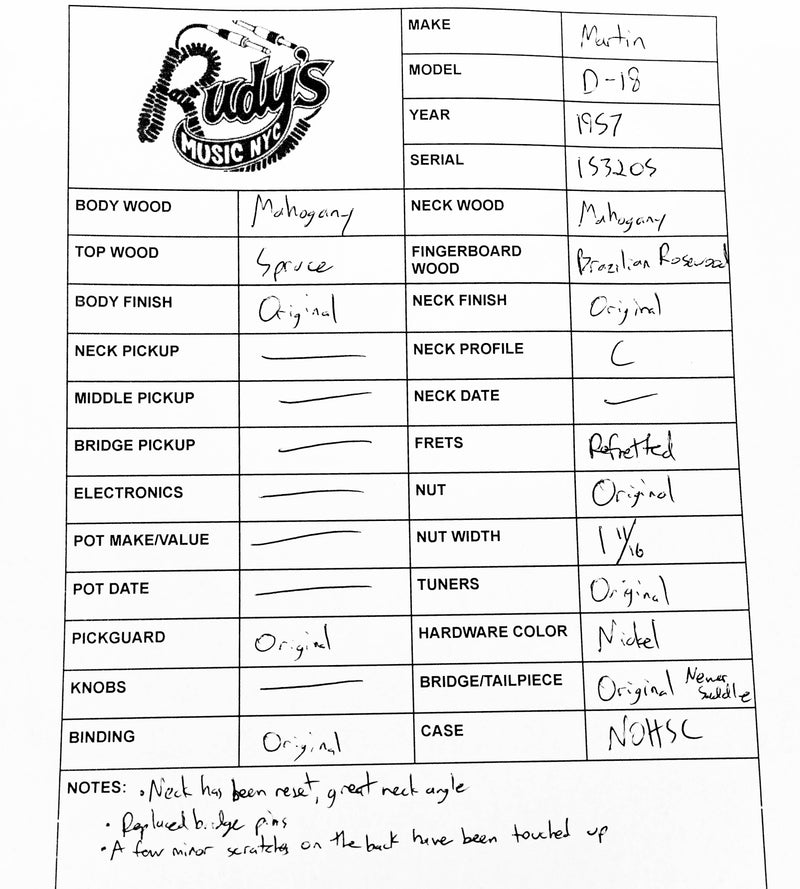 Rudy's
MUSIC NYC
MAKE Martin
MODEL D-18
YEAR 1957
SERIAL 153205
BODY WOOD Mahogany NECK WOOD Mahogany
TOP WOOD Spruce FINGERBOARD WOOD Brazilian Rosewood
BODY FINISH Original NECK FINISH Original
NECK PICKUP — NECK PROFILE C
MIDDLE PICKUP — NECK DATE —
BRIDGE PICKUP — FRETS Refretted
ELECTRONICS — NUT Original
POT MAKE/VALUE — NUT WIDTH 1 11/16
POT DATE — TUNERS Original
PICKGUARD Original HARDWARE COLOR Nickel
KNOBS — BRIDGE/TAILPIECE Original Newer saddle
BINDING Original CASE NOHSC
NOTES: • Neck has been reset, great neck angle
• Replaced bridge pins
• A few minor scratches on the back have been touched up